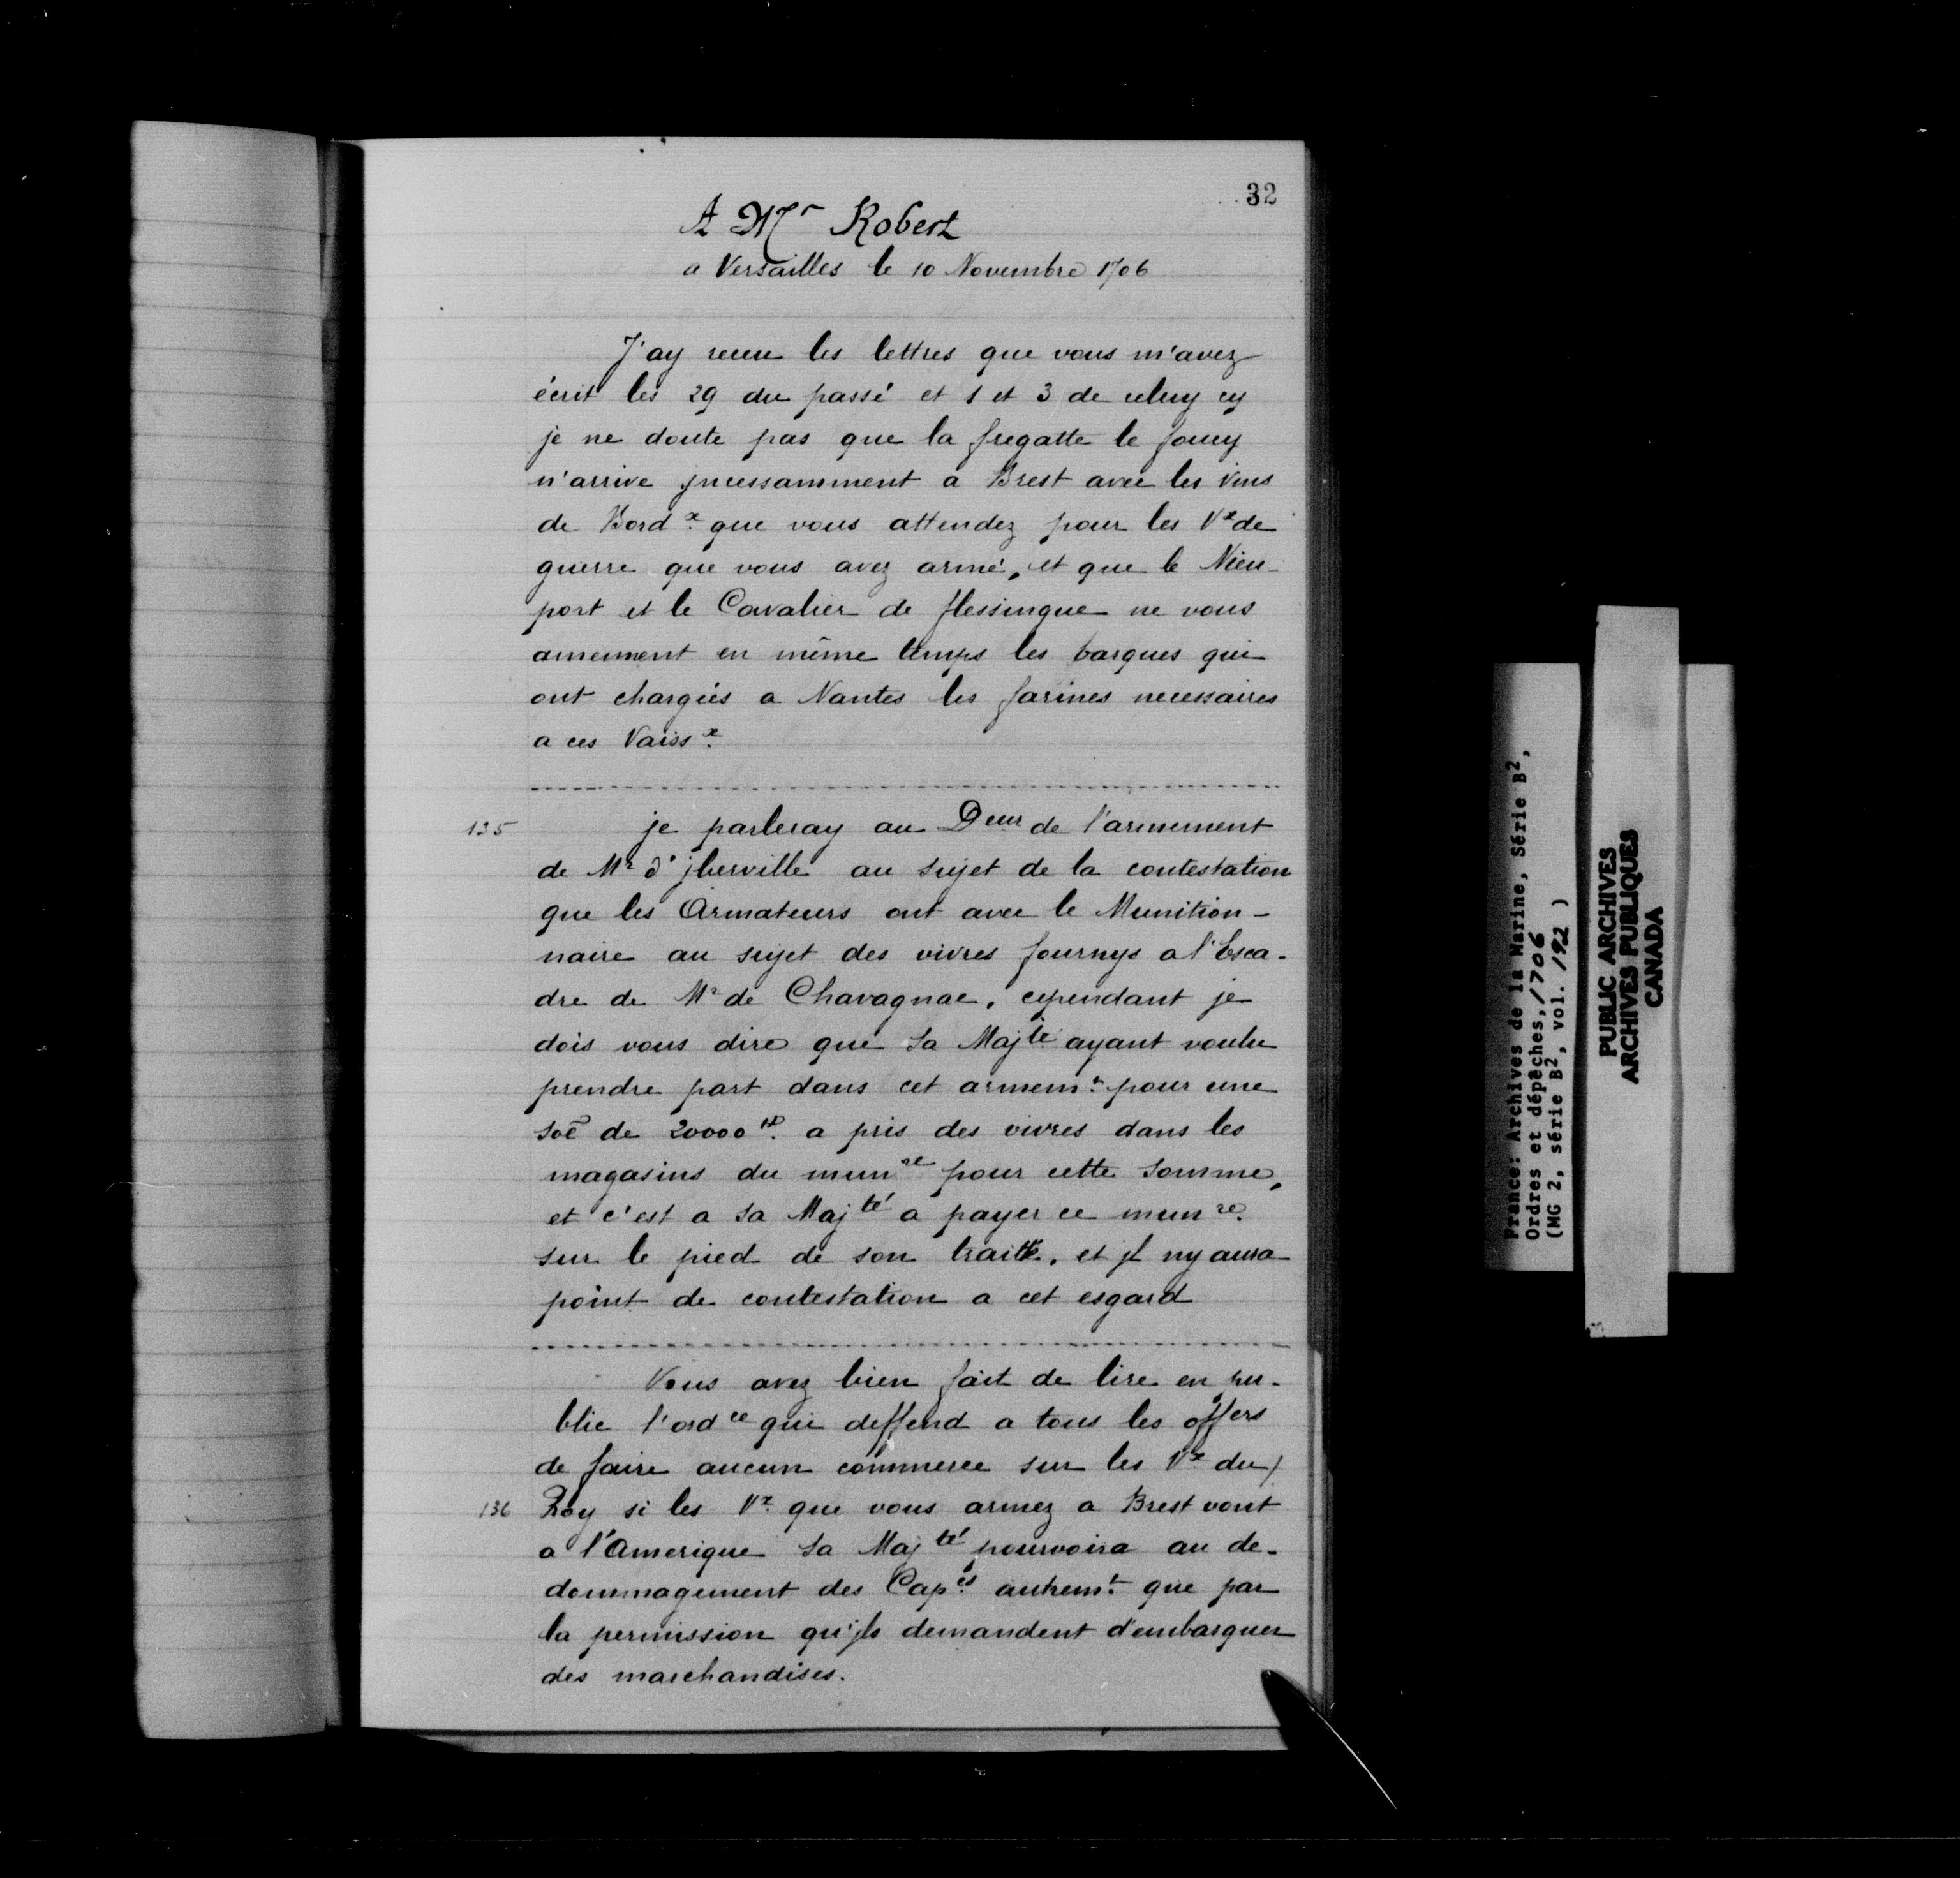 32
A Mr Robert
a Versailles le 10 Novembre 1706
J'ay receu les lettres que vous m'avez
écrit les 29 du passé et 1 et 3 de celuy cy
je ne doute pas que la fregatte le jouey
n'arrive jncessamment a Brest avec les vins
de Bordx que vous attendez pour les Vx de
guerre que vous avez armé, et que le Nieu-
port et le Cavalier de flessingue ne vous
amennent en même temps les barques qui
ont chargées a Nantes les farines necessaires
a ces Vaissx
135 je parleray au Deur de l'armement
de Mr d'jberville au sujet de la contestation
que les Armateurs ont avec le Munition-
naire au sujet des vivres fournys a l'Esca-
dre de Mr de Chavagnac, cependant je
dois vous dire que sa Majté ayant voulu
prendre part dans cet armemt pour une
soē de 20000 ₶ a pris des vivres dans les
magasins du munre pour cette somme,
et c'est a sa Majté a payer ce munre
sur le pied de son traitté, et jl ny aura
point de contestation a cet esgard
Vous avez bien fait de lire en pu-
blic l'ordce qui deffend a tous les offers
de faire aucun commerce sur les Vx du/
136 Roy si les Vx que vous armez a Brest vont
a l'Amerique sa Majté pourvoira au de-
dommagement des Capes autremt que par
la permission qu'jls demandent d'embarquer
des marchandises.
France: Archives de la Marine, Série B2,
Ordres et dépêches, 1706
(MG 2, série B2, vol. 192 )
PUBLIC ARCHIVES
ARCHIVES PUBLIQUES
CANADA